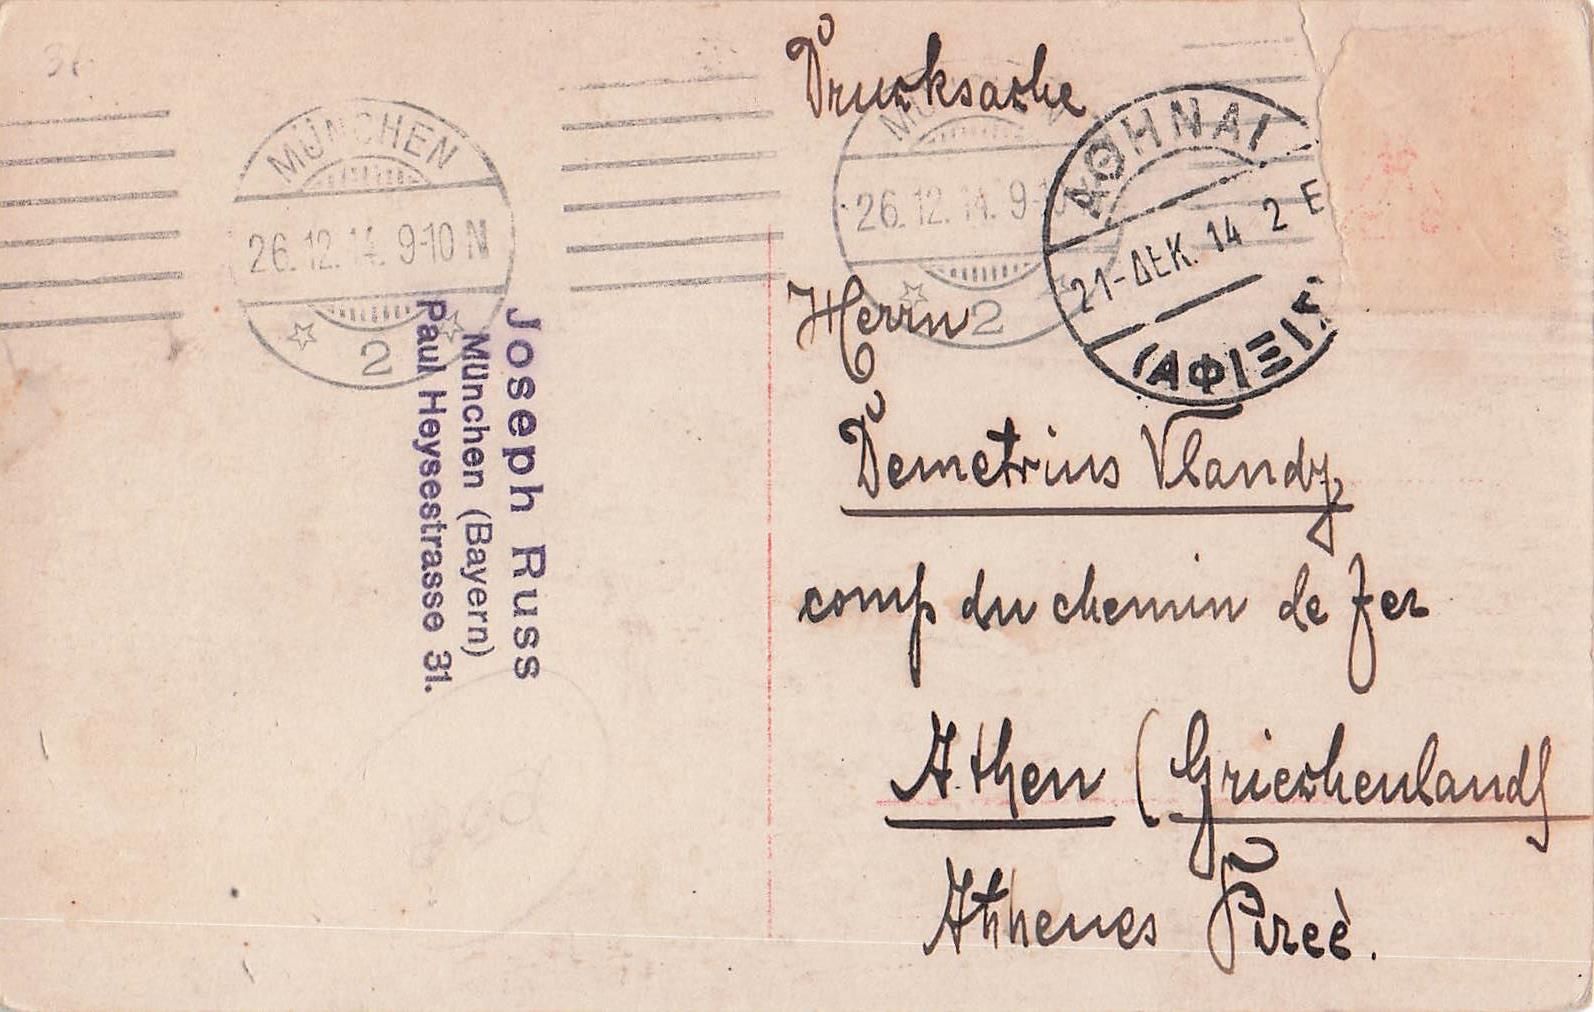 Drucksache
MÜNCHEN
26.12.14. 9-10 N
2
MÜNCHEN
26.12.14. 9-10
2
ΑΘΗΝΑΙ
21-ΔΕΚ. 14 2 Ε
(ΑΦΙΞΙΣ
Joseph Russ
München (Bayern)
Paul Heysestrasse 31.
Herrn
Demetrius Vlandy,
comp du chemin de fer
Athen (Griechenland)
Athenes Pireè.